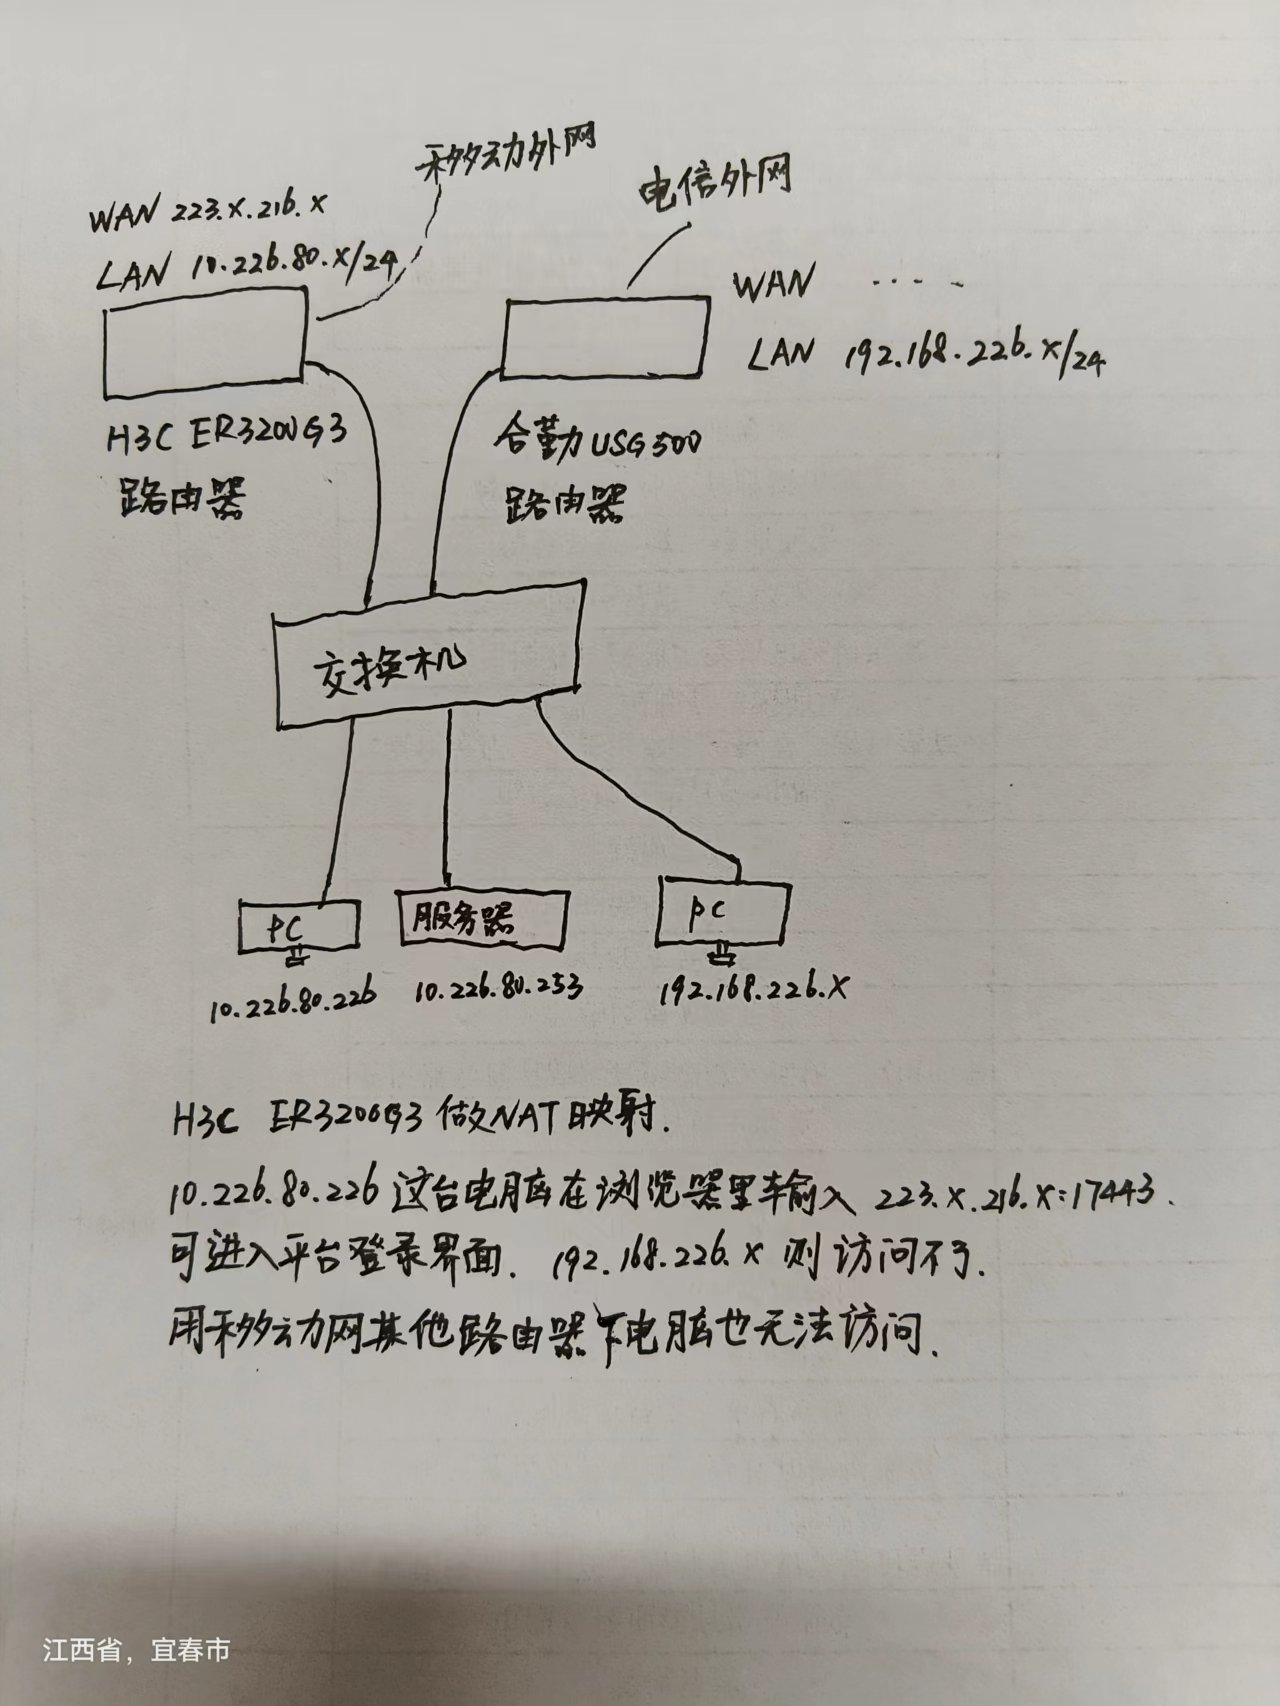 移动外网
电信外网
WAN 223.X.216.X
LAN 10.226.80.X/24
WAN ....
LAN 192.168.226.X/24
H3C ER3200G3
路由器
合勤USG500
路由器
交换机
PC
服务器
PC
10.226.80.226
10.226.80.253
192.168.226.X
H3C ER3200G3 做NAT映射.
10.226.80.226 这台电脑在浏览器里输入 223.X.216.X:17443.
可进入平台登录界面. 192.168.226.X 则访问不了.
用移动网其他路由器下电脑也无法访问.
江西省，宜春市